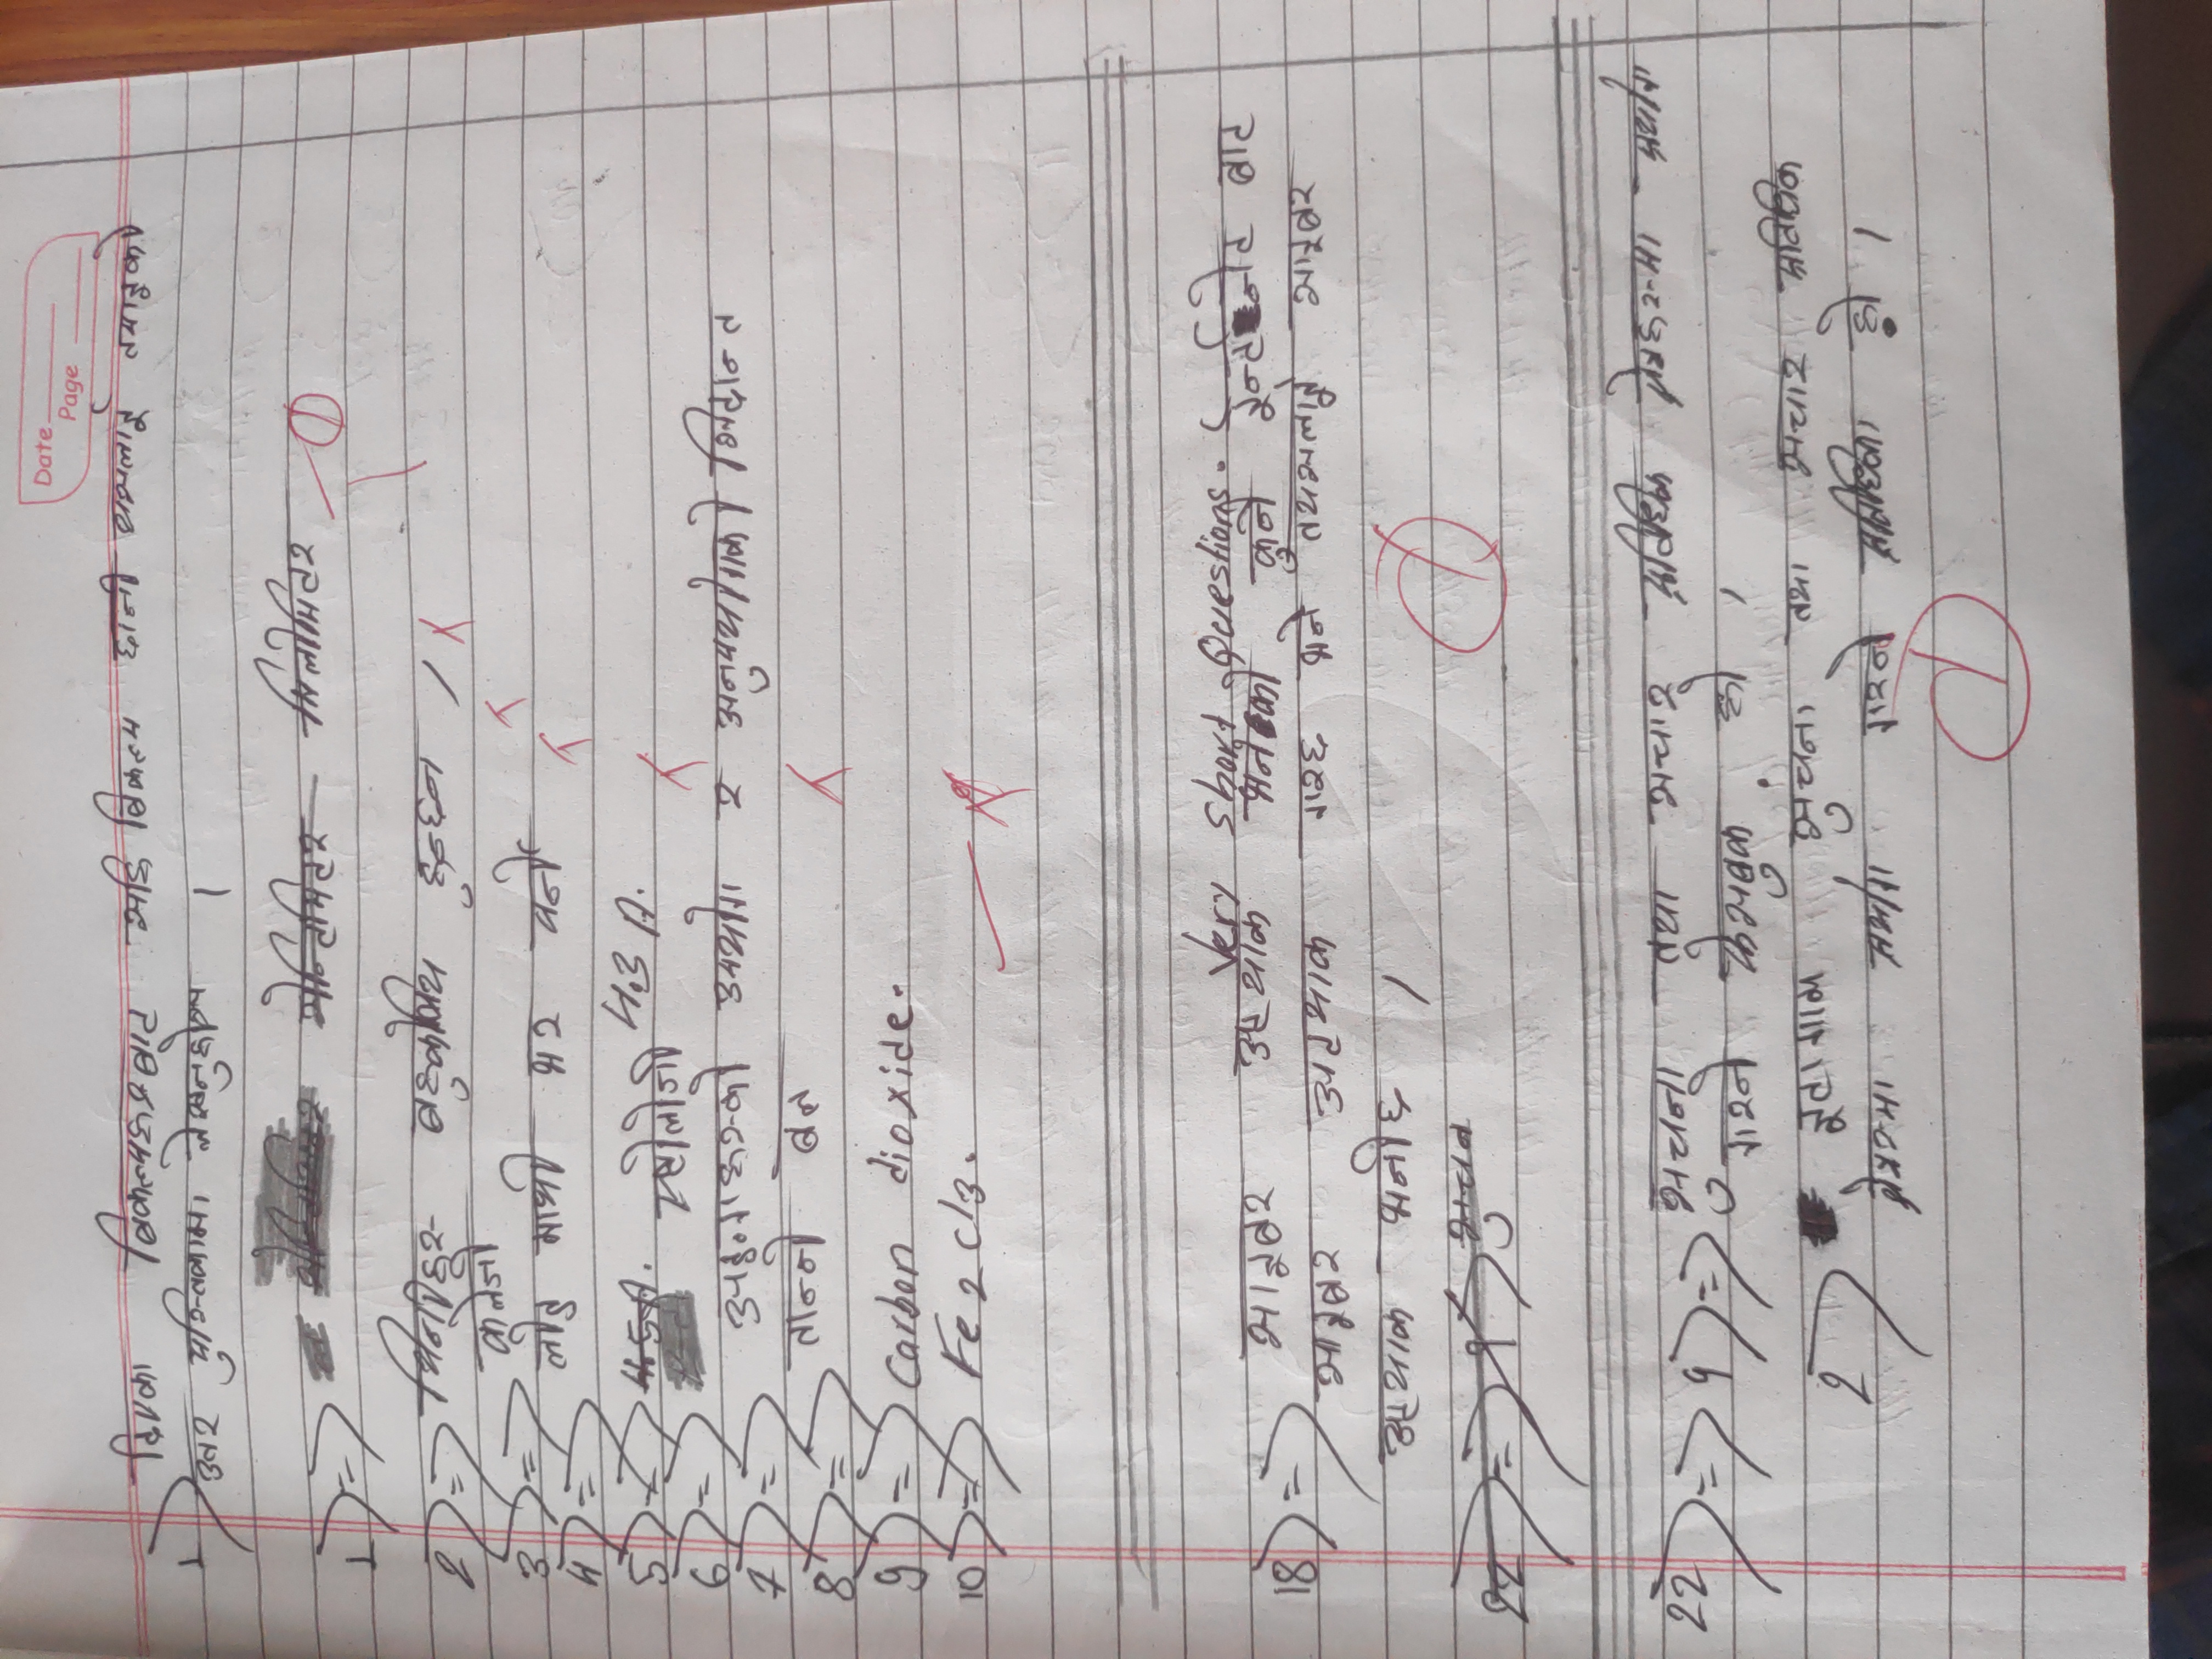 Date
Page
1) दिएका बिकल्पहरुबाट सहि बिकल्प छानी यसलाई तपाइको
उतर पुस्तिकामा लेख्नुहोस ।
1) => सेन्टिमिटर मिलोमिटर
2) => यिनीहरु बहुकोषिय हुन्छन ।
3) => कलेजो
4) => लोड माथी भर पर्ने
5) => 4.5A. 4.3 A.
6) => एष्टोलोजी
7) => अङ्गहरुको उपयोग र अनुपयोगको सिद्धान्त
8) => तान्ने बल
9) => Carbon dioxide.
10) => Fe2Cl3.
Very Short Questions.
18) => साइबर अट्याक भनेको कुनै ईन्टरनेट बाट
साइबर अट्याक गरछ भने त्यसलाई साइबर
अट्याक भनीछ ।
22) => १) सुचन
22) => १) => सुचना तथा सचार प्रबिधिक क्षेत्रहरुमा प्रयोग
गरने फेसबुक हो ।
2) इटाग्राम सुंचना तथा सचार प्रबिधिक
क्षेत्ररुमा प्रयोग गरने प्रबिधिका हो ।